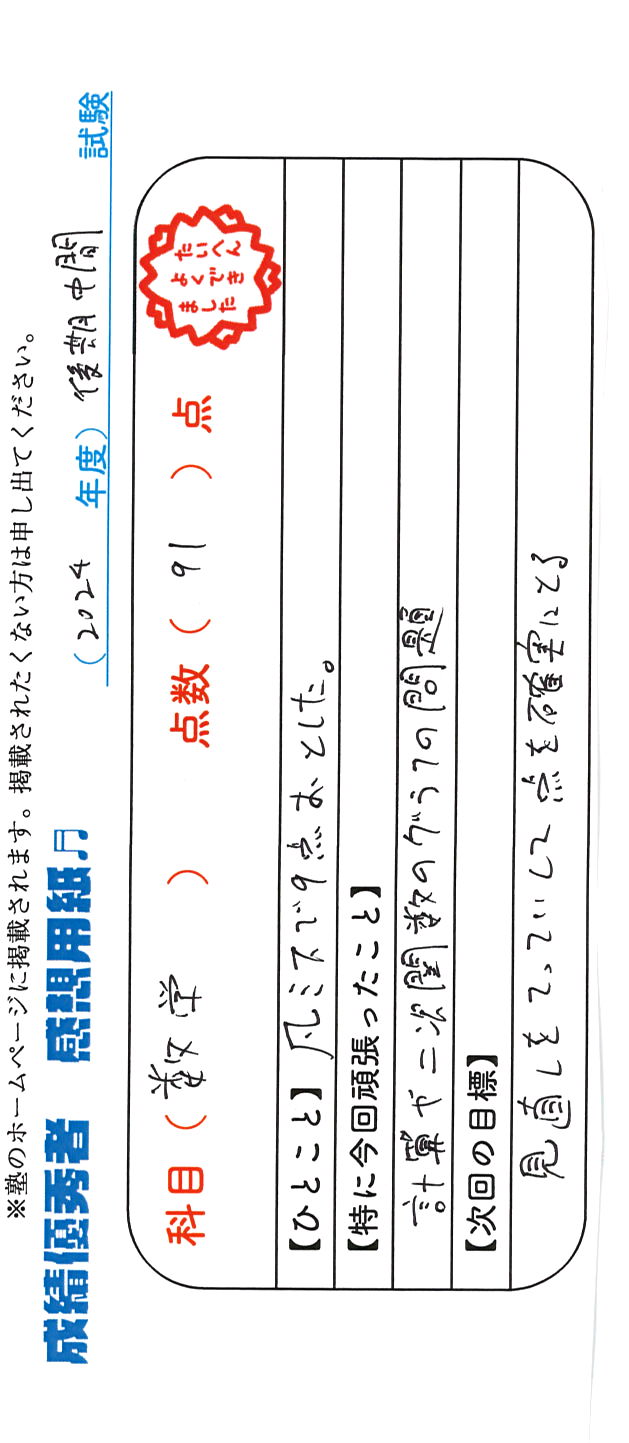 ※塾のホームページに掲載されます。掲載されたくない方は申し出てください。
成績優秀者 感想用紙♫
（2024 年度）後期中間 試験
科目（数学）点数（91）点
たいへん
よくでき
ました
【ひとこと】凡ミスで9点おとした。
【特に今回頑張ったこと】
計算や二次関数のグラフの問題
【次回の目標】
見直しをていしして点を確実にとる